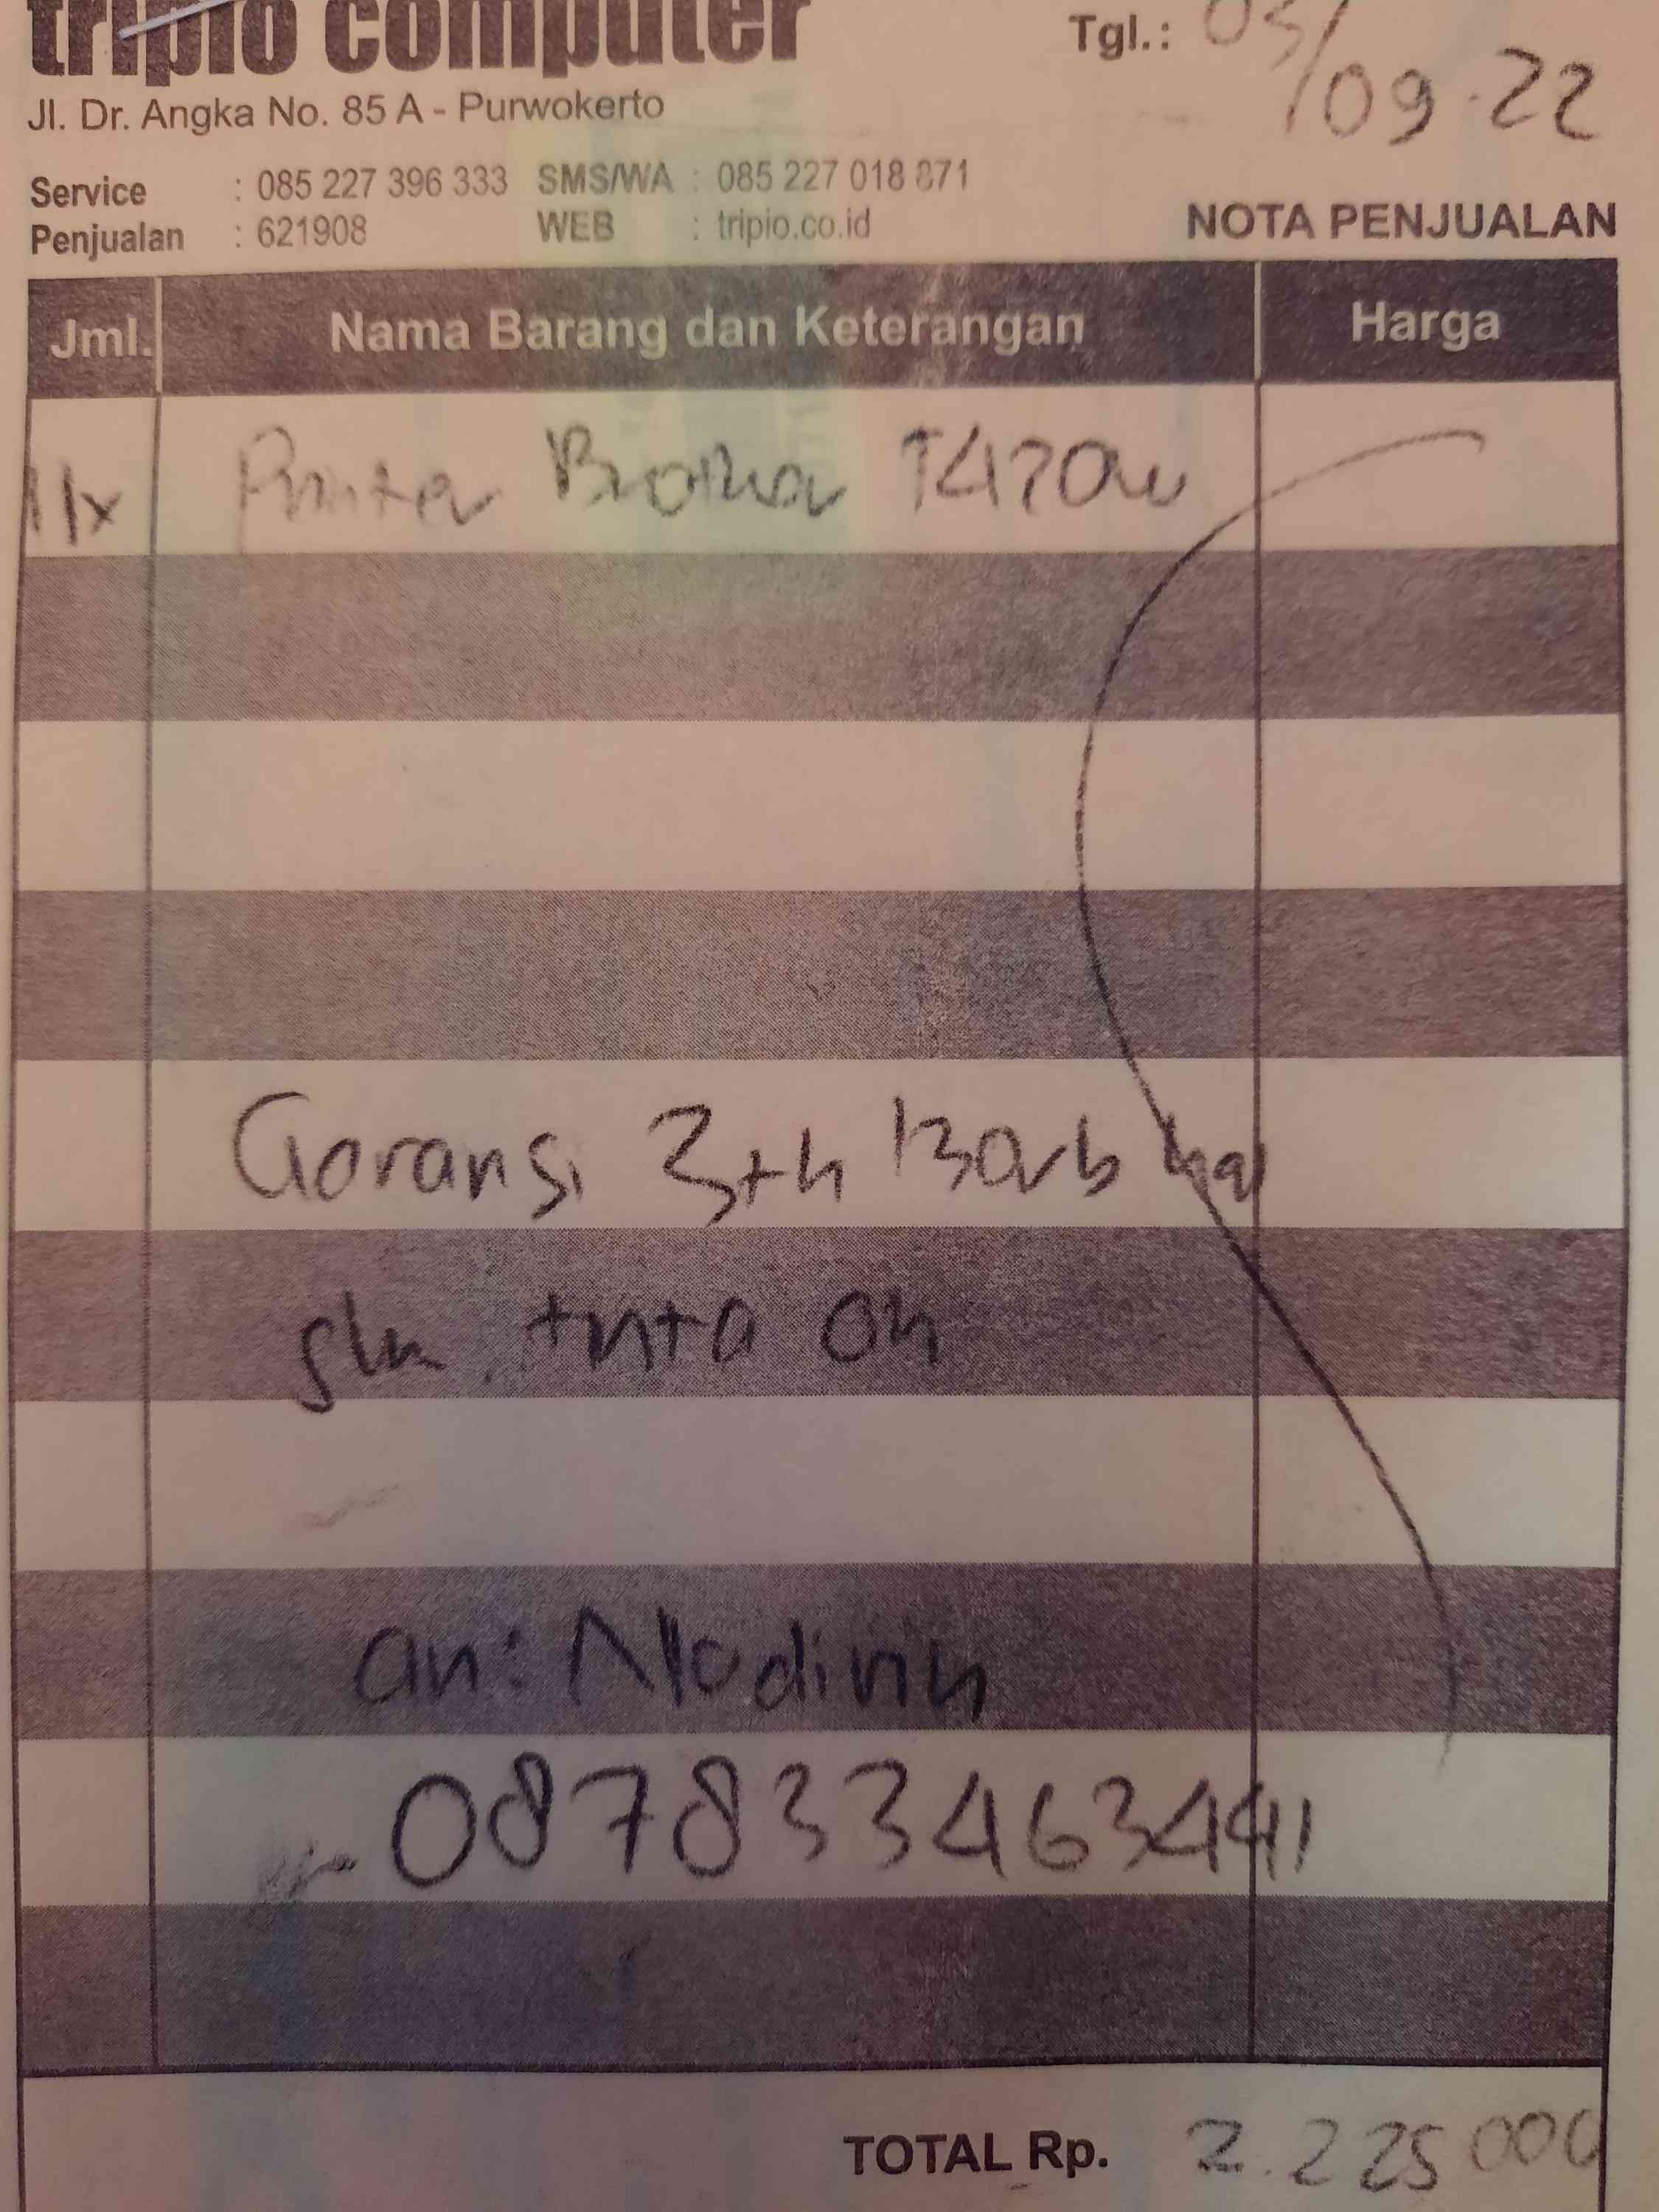 tripio computer
Tgl.: 03/09-22
Jl. Dr. Angka No. 85 A - Purwokerto
Service : 085 227 396 333 SMS/WA : 085 227 018 871
Penjualan : 621908 WEB : tripio.co.id
NOTA PENJUALAN
Jml. Nama Barang dan Keterangan Harga
1x Printer Brother T420w
Goransi 3th
slm tnta on
an:
087833463441
TOTAL Rp. 2.225000